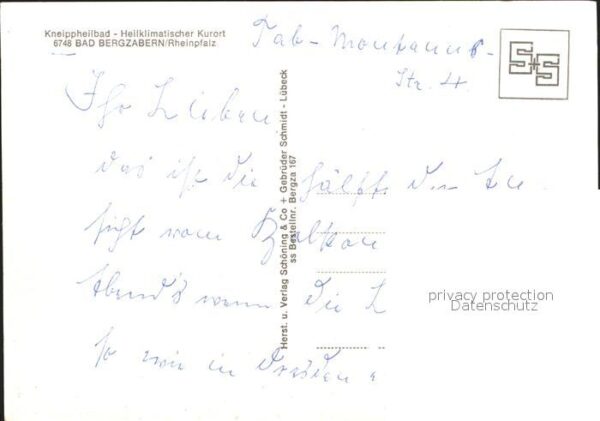 Kneippheilbad - Heilklimatischer Kurort
6748 BAD BERGZABERN/Rheinpfalz
Tab - Montanus -
Str. 4.
S+S
Ihr Lieben
das ist die Hälfte der An-
sicht vom Balkon
Abend's wenn die L
so wie in Dresden
Herst. u. Verlag Schöning & Co + Gebrüder Schmidt - Lübeck
ss Bestellnr. Bergza 167
privacy protection
Datenschutz